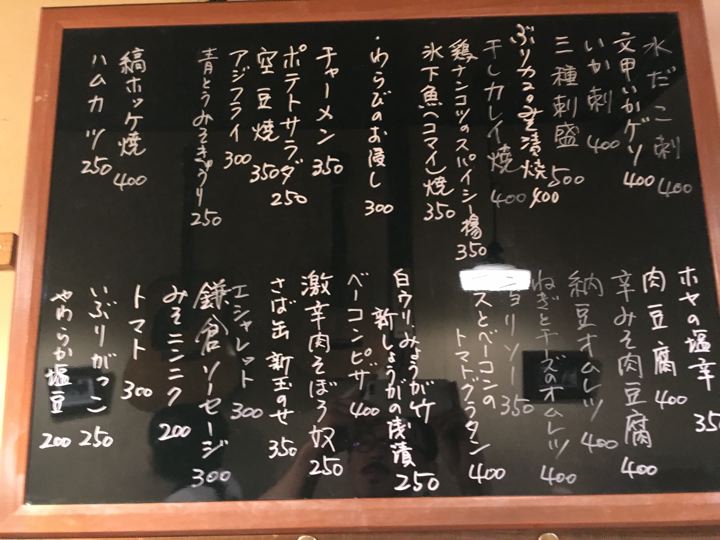 水だこ刺 400
文甲いかゲソ 400
いか刺 400
三種刺盛 500
ぶりカマ塩焼 400
干しカレイ焼 400
鶏ナンコツのスパイシー揚 350
氷下魚(コマイ)焼 350
・わらびのお浸し 300
チャーメン 350
ポテトサラダ 250
空豆焼 350
アジフライ 300
青とうみそきゅうり 250
縞ホッケ焼 400
ハムカツ 250
ホヤの塩辛 350
肉豆腐 400
辛みそ肉豆腐 400
納豆オムレツ 400
ねぎとチーズのオムレツ 400
チョリソー 350
スとベーコンの
トマトグラタン 400
白ウリみょうが竹
新しょうがの浅漬 250
ベーコンピザ 400
激辛肉そぼろ奴 250
さば缶 新玉のせ 350
エシャレット 300
鎌倉ソーセージ 300
みそニンニク 200
トマト 300
いぶりがっこ 250
やわらか塩豆 200